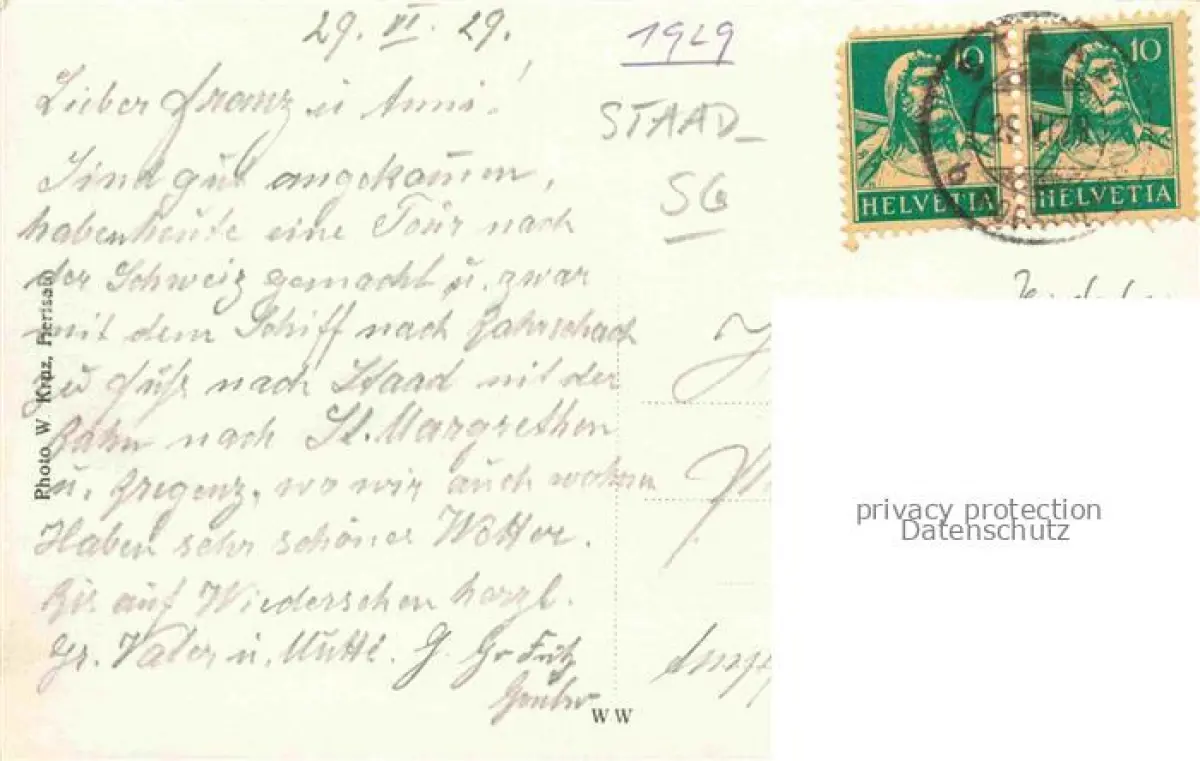 29. VI. 29.
Lieber Franz u Anni!
Sind gut angekommen,
haben heute eine Tour nach
der Schweiz gemacht u. zwar
mit dem Schiff nach Rohrschach
zu Fuß nach Staad mit der
Bahn nach St. Margrethen
u. Bregenz, wo wir auch wohnen
Haben sehr schönes Wetter.
Bis auf Wiedersehen herzl.
Gr. Vater u. Mutti. G. Gr Fritz
Photo W. Kruz, Herisau
WW
1929
STAAD
SG
10
10
HELVETIA
HELVETIA
privacy protection
Datenschutz